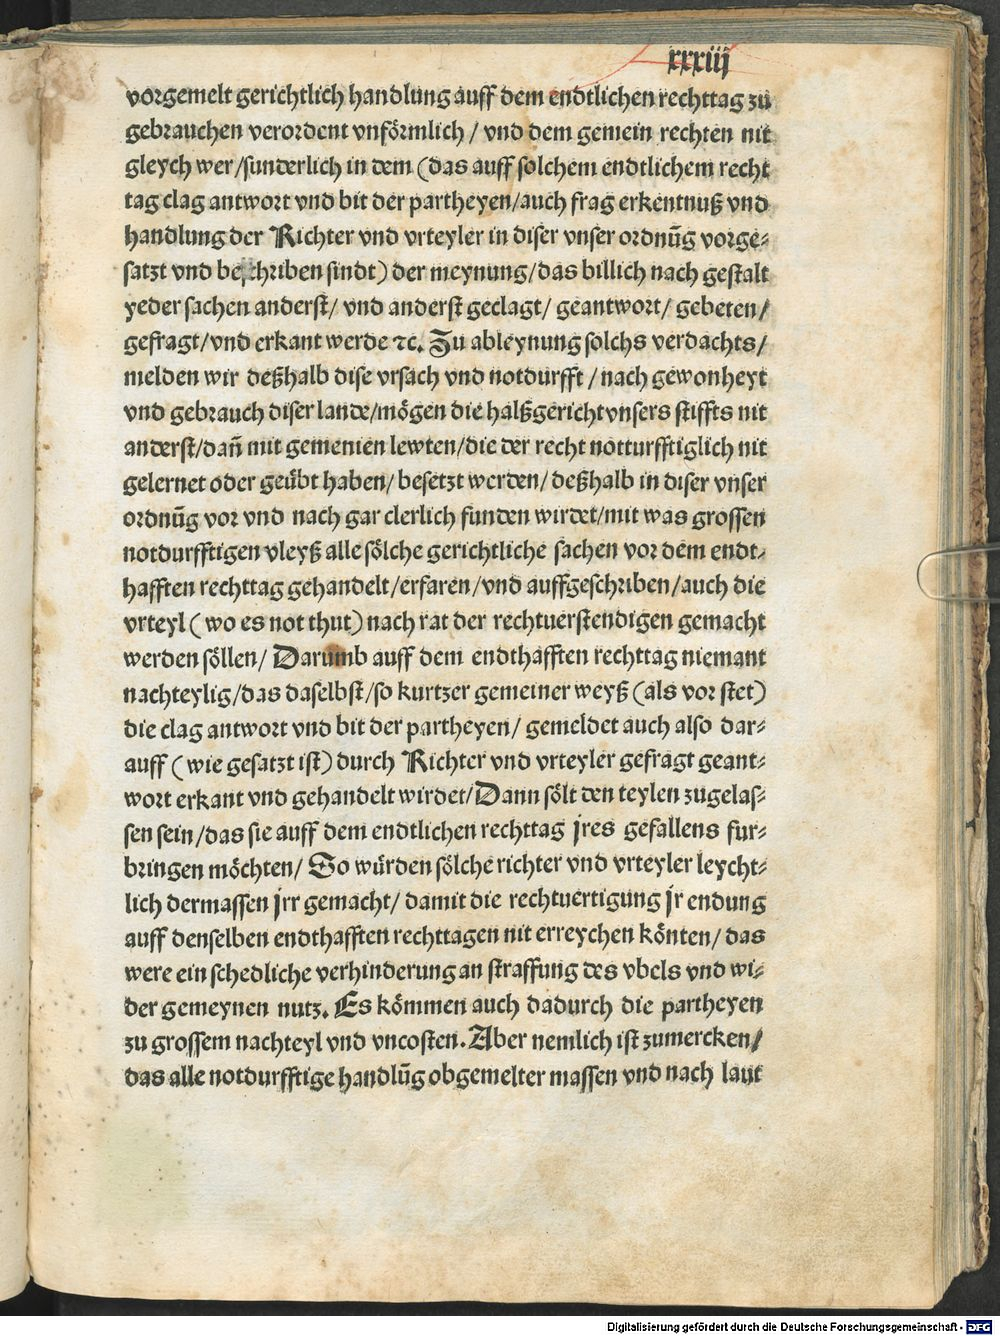 xxxiij
vorgemelt gerichtlich handlung auff dem endtlichen rechttag zu
gebrauchen verordent vnförmlich / vnd dem gemein rechten nit
gleych wer /sunderlich in dem (das auff solchem endtlichem recht
tag clag antwort vnd bit der partheyen/auch frag erkentnuß vnd
handlung der Richter vnd vrteyler in diser vnser ordnūg vorge⸗
satzt vnd beschriben sindt) der meynung/das billich nach gestalt
yeder sachen anderst/ vnd anderst geclagt/ geantwort/ gebeten/
gefragt/vnd erkant werde ⁊c. Zu ableynung solchs verdachts/
melden wir deßhalb dise vrsach vnd notdurfft / nach gewonheyt
vnd gebrauch diser lande/mögen die halßgericht vnsers stiffts nit
anderst/dañ mit gemenien lewten/die der recht notturfftiglich nit
gelernet oder geübt haben/ besetzt werden/ deßhalb in diser vnser
ordnūg vor vnd nach gar clerlich funden wirdet/mit was grossen
notdurfftigen vleyß alle sölche gerichtliche sachen vor dem endt⸗
hafften rechttag gehandelt/erfaren/vnd auffgeschriben/auch die
vrteyl (wo es not thut) nach rat der rechtuerstendigen gemacht
werden söllen/ Darumb auff dem endthafften rechttag niemant
nachteylig/das daselbst/so kurtzer gemeiner weyß (als vor stet)
die clag antwort vnd bit der partheyen/ gemeldet auch also dar⸗
auff (wie gesatzt ist) durch Richter vnd vrteyler gefragt geant⸗
wort erkant vnd gehandelt wirdet/Dann sölt den teylen zugelas⸗
sen sein/das sie auff dem endtlichen rechttag jres gefallens fur⸗
bringen möchten/ So würden sölche richter vnd vrteyler leycht⸗
lich dermassen jrr gemacht/ damit die rechtuertigung jr endung
auff denselben endthafften rechttagen nit erreychen könten/ das
were ein schedliche verhinderung an straffung des vbels vnd wi⸗
der gemeynen nutz. Es kömmen auch dadurch die partheyen
zu grossem nachteyl vnd vncosten. Aber nemlich ist zumercken/
das alle notdurfftige handlūg obgemelter massen vnd nach laut
Digitalisierung gefördert durch die Deutsche Forschungsgemeinschaft - DFG